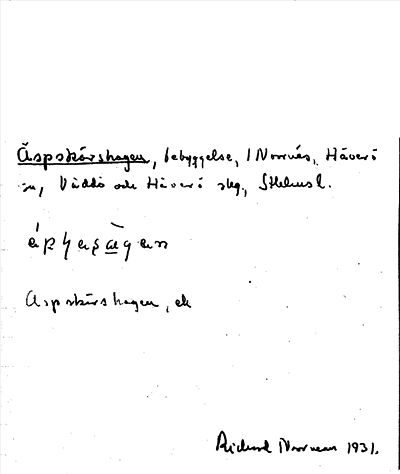 Äspskärshagen, bebyggelse, i Norrnäs, Häverö
sn, Väddö och Häverö skg, Sthlms l.
Äspskärshagen, ek
Richard Norrman 1931.